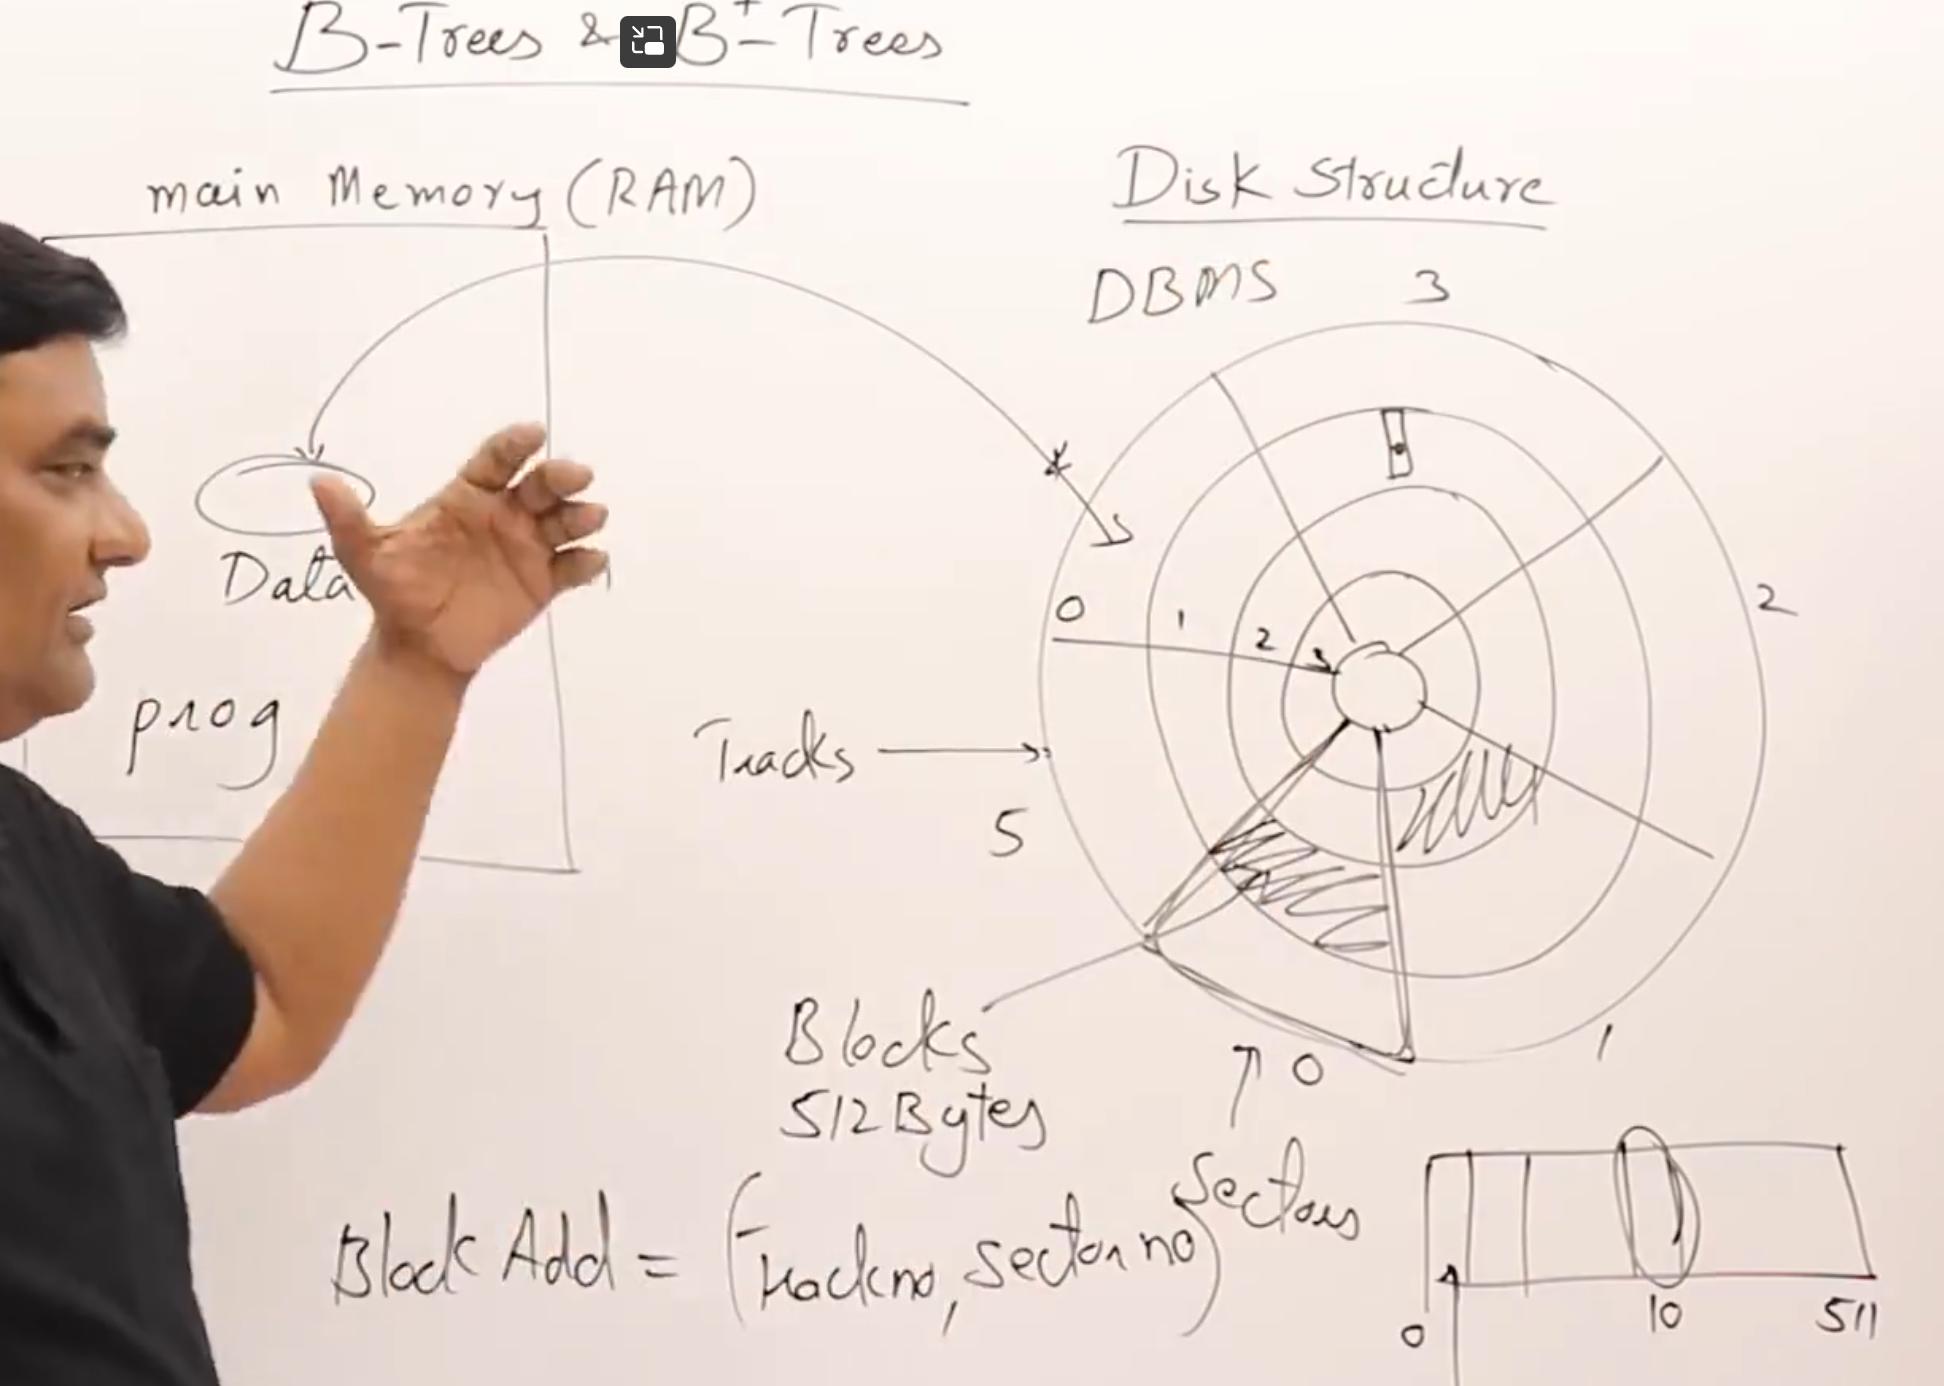 B-Trees & B+-Trees
main Memory (RAM)
Disk Structure
DBMS
3
0
1
2
3
2
Data
prog
Tracks
5
Blocks
512 Bytes
0
1
Sectors
Block Add = (Track no, Sector no)
0
10
511